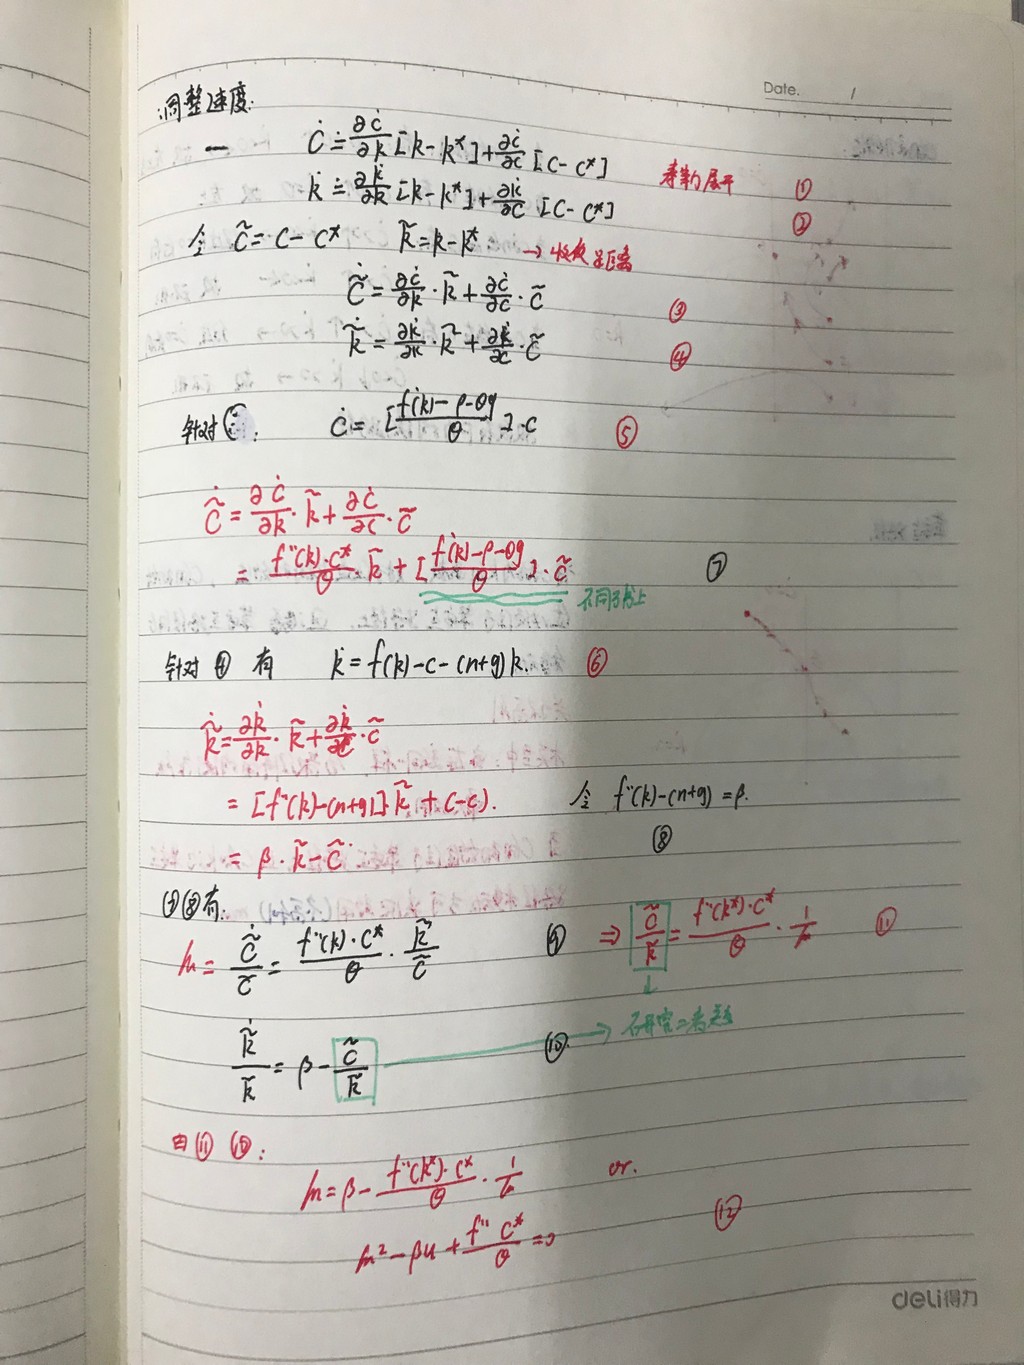 Date. /
调整速度:
— ċ ≐ ∂ċ/∂k [k-k*] + ∂ċ/∂c [c-c*]
泰勒展开 ①
k̇ ≐ ∂k̇/∂k [k-k*] + ∂k̇/∂c [c-c*] ②
令 c̃ = c-c* k̃ = k-k* → 收敛距离
c̃̇ = ∂ċ/∂k · k̃ + ∂ċ/∂c · c̃ ③
k̃̇ = ∂k̇/∂k · k̃ + ∂k̇/∂c · c̃ ④
针对 : ċ = [f'(k)-ρ-θg / θ] · c ⑤
c̃̇ = ∂ċ/∂k · k̃ + ∂ċ/∂c · c̃
= f''(k)·c*/θ · k̃ + [f'(k)-ρ-θg / θ] · c̃ ⑦
不同于书上
针对 ④ 有 k̇ = f(k)-c-(n+g)k. ⑥
k̃̇ = ∂k̇/∂k · k̃ + ∂k̇/∂c · c̃
= [f''(k)-(n+g)] k̃ + (-c). 令 f''(k)-(n+g) = β.
= β · k̃ - c̃ ⑧
⑦⑧有:
μ = c̃̇/c̃ = f''(k)·c*/θ · k̃/c̃ ⑨ ⇒ c̃/k̃ = f''(k*)·c*/θ · 1/μ ⑪
k̃̇/k̃ = β - c̃/k̃ ⑩ → 研究二者关系
由⑪ ⑩:
μ = β - f''(k*)·c*/θ · 1/μ or.
μ² - βμ + f'' c*/θ = 0 ⑫
deli得力